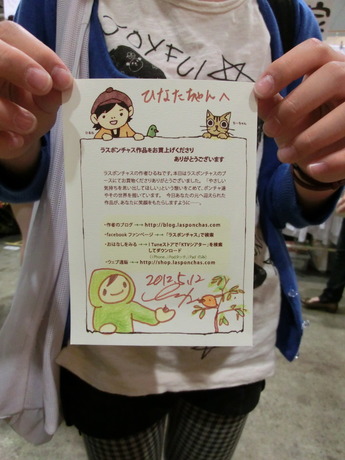 JOYFUL
ひなたちゃんへ
ラスポンチャス作品をお買上げくださり
ありがとうございます
ラスポンチャスの作者ひるねです。本日はラスポンチャスのブ
ースにてお買物くださりありがとうございました。「やさしい
気持ちを思い出してほしい」という想いをこめて、ポンチャ達
やその世界を描いています。 今日あなたの元へ迎えられた
作品が、あなたに笑顔をもたらしますように…
・作者のブログ →→ http://blog.lasponchas.com
・facebook ファンページ →→「ラスポンチャス」で検索
・おはなしをみる →→ iTuneストアで「KTVシアター」を検索
してダウンロード
・ウェブ通販 →→ http://shop.lasponchas.com
2012.5.12